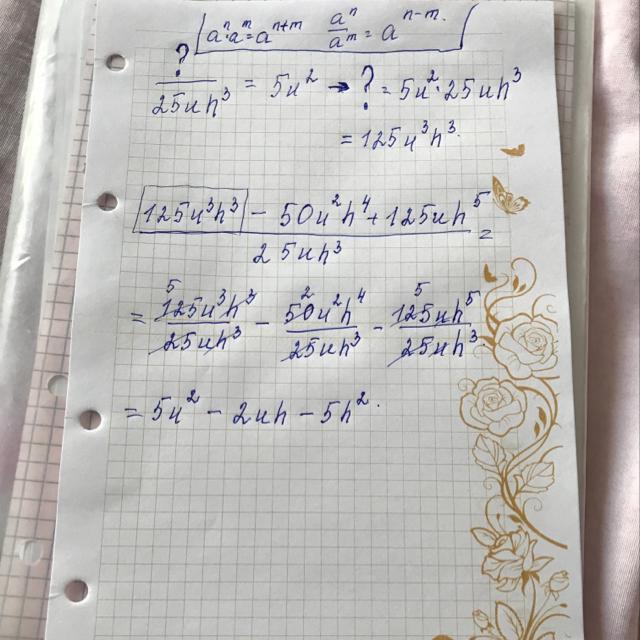 aⁿaᵐ=aⁿ⁺ᵐ aⁿ/aᵐ = aⁿ⁻ᵐ.
?/25uh³ = 5u² → ? = 5u²·25uh³
= 125u³h³.
(125u³h³ − 50u²h⁴ + 125uh⁵)/25uh³ =
= 5 125u³h³/25uh³ − 2 50u²h⁴/25uh³ − 5 125uh⁵/25uh³
= 5u² − 2uh − 5h².